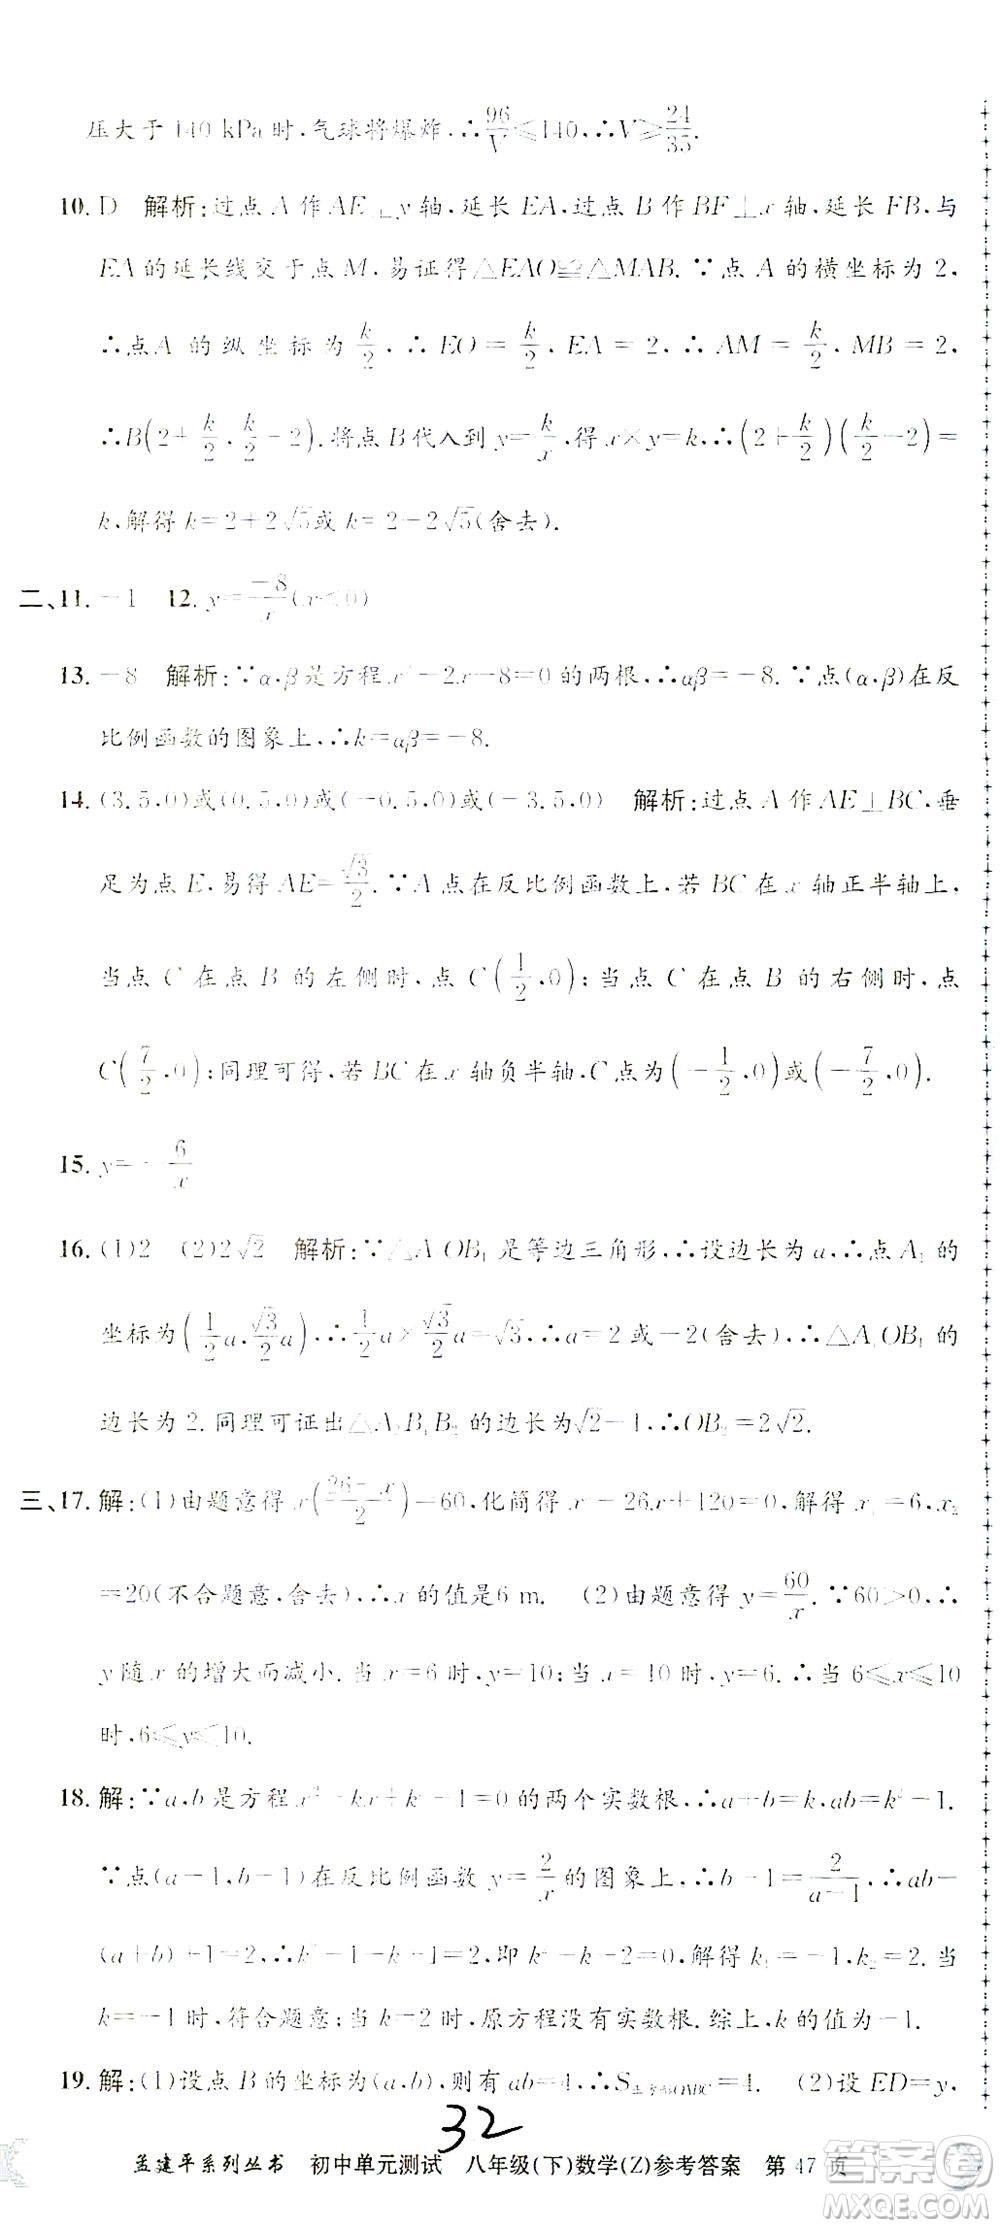 压大于 140 kPa 时,气球将爆炸,∴96/V≤140,∴V≥24/35.
10. D 解析:过点 A 作 AE⊥y 轴,延长 EA,过点 B 作 BF⊥x 轴,延长 FB,与
EA 的延长线交于点 M,易证得△EAO≌△MAB.∵点 A 的横坐标为 2,
∴点A 的纵坐标为 k/2,∴EO=k/2,EA=2,∴AM=k/2,MB=2,
∴B(2+k/2,k/2-2).将点 B 代入到 y=k/x,得 x×y=k,∴(2+k/2)(k/2-2)=
k,解得 k=2+2√5或 k=2-2√5(舍去).
二、11. -1 12. y=-8/x(x<0)
13. -8 解析:∵α,β是方程x²-2x-8=0的两根,∴αβ=-8.∵点(α,β)在反
比例函数的图象上,∴k=αβ=-8.
14. (3.5,0)或(0.5,0)或(-0.5,0)或(-3.5,0) 解析:过点 A 作 AE⊥BC,垂
足为点 E,易得 AE=√3/2.∵A 点在反比例函数上,若 BC 在 x 轴正半轴上,
当点 C 在点 B 的左侧时,点 C(1/2,0);当点 C 在点 B 的右侧时,点
C(7/2,0);同理可得,若 BC 在 x 轴负半轴,C点为(-1/2,0)或(-7/2,0).
15. y=-6/x
16. (1)2 (2)2√2 解析:∵△A₁OB₁ 是等边三角形,∴设边长为 a,∴点 A₁ 的
坐标为(1/2a,√3/2a),∴1/2a×√3/2a=√3,∴a=2 或-2(舍去),∴△A₁OB₁ 的
边长为 2.同理可证出△A₂B₁B₂ 的边长为√2-1,∴OB₂=2√2.
三、17. 解:(1)由题意得 x(26-x/2)=60,化简得 x²-26x+120=0,解得 x₁=6,x₂
=20(不合题意,舍去),∴x 的值是6 m. (2)由题意得 y=60/x.∵60>0,∴
y 随 x 的增大而减小.当 x=6 时,y=10;当 x=10 时,y=6.∴当 6≤x≤10
时,6≤y≤10.
18. 解:∵a,b 是方程 x²-kx+k²-1=0 的两个实数根,∴a+b=k,ab=k²-1.
∵点(a-1,b-1)在反比例函数 y=2/x 的图象上,∴b-1=2/a-1,∴ab-
(a+b)+1=2,∴k²-1-k-1=2,即 k²-k-2=0,解得 k₁=-1,k₂=2.当
k=-1 时,符合题意;当 k=2 时,原方程没有实数根.综上,k 的值为-1.
19. 解:(1)设点 B 的坐标为(a,b),则有 ab=4,∴S正方形OABC=4. (2)设 ED=y,
32
孟建平系列丛书 初中单元测试 八年级(下)数学(Z)参考答案 第 47 页
答案圈
MXQE.COM